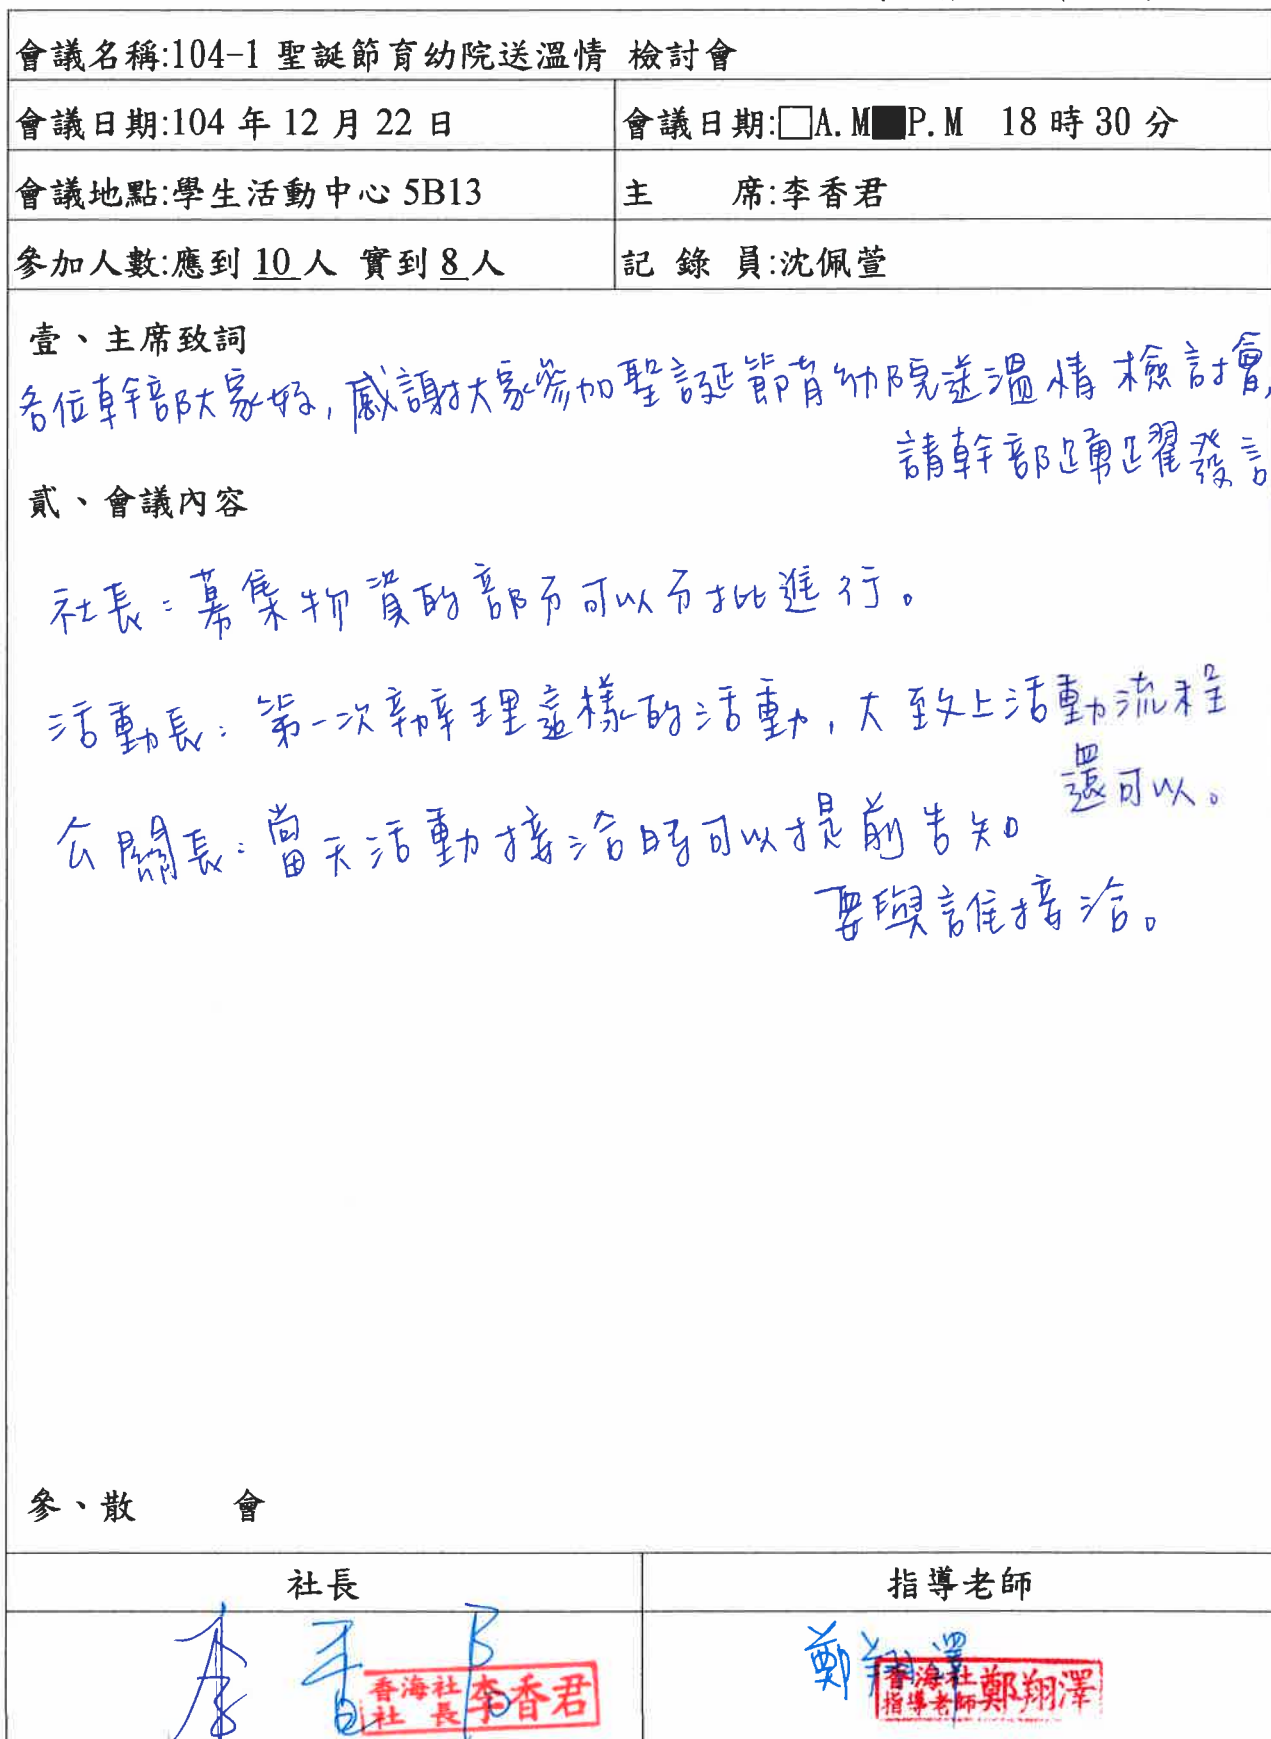 會議名稱:104-1 聖誕節育幼院送溫情 檢討會
會議日期:104 年 12 月 22 日
會議日期:□A.M■P.M 18 時 30 分
會議地點:學生活動中心 5B13
主 席:李香君
參加人數:應到 10 人 實到 8 人
記 錄 員:沈佩萱
壹、主席致詞
各位幹部大家好,感謝大家參加聖誕節育幼院送溫情檢討會,
請幹部踴躍發言
貳、會議內容
社長:募集物資的部分可以分批進行。
活動長:第一次辦理這樣的活動,大致上活動流程
還可以。
公關長:當天活動接洽時可以提前告知
要與誰接洽。
參、散 會
社長
指導老師
李香君
香海社
社 長
李香君
鄭翔澤
香海社
指導老師
鄭翔澤